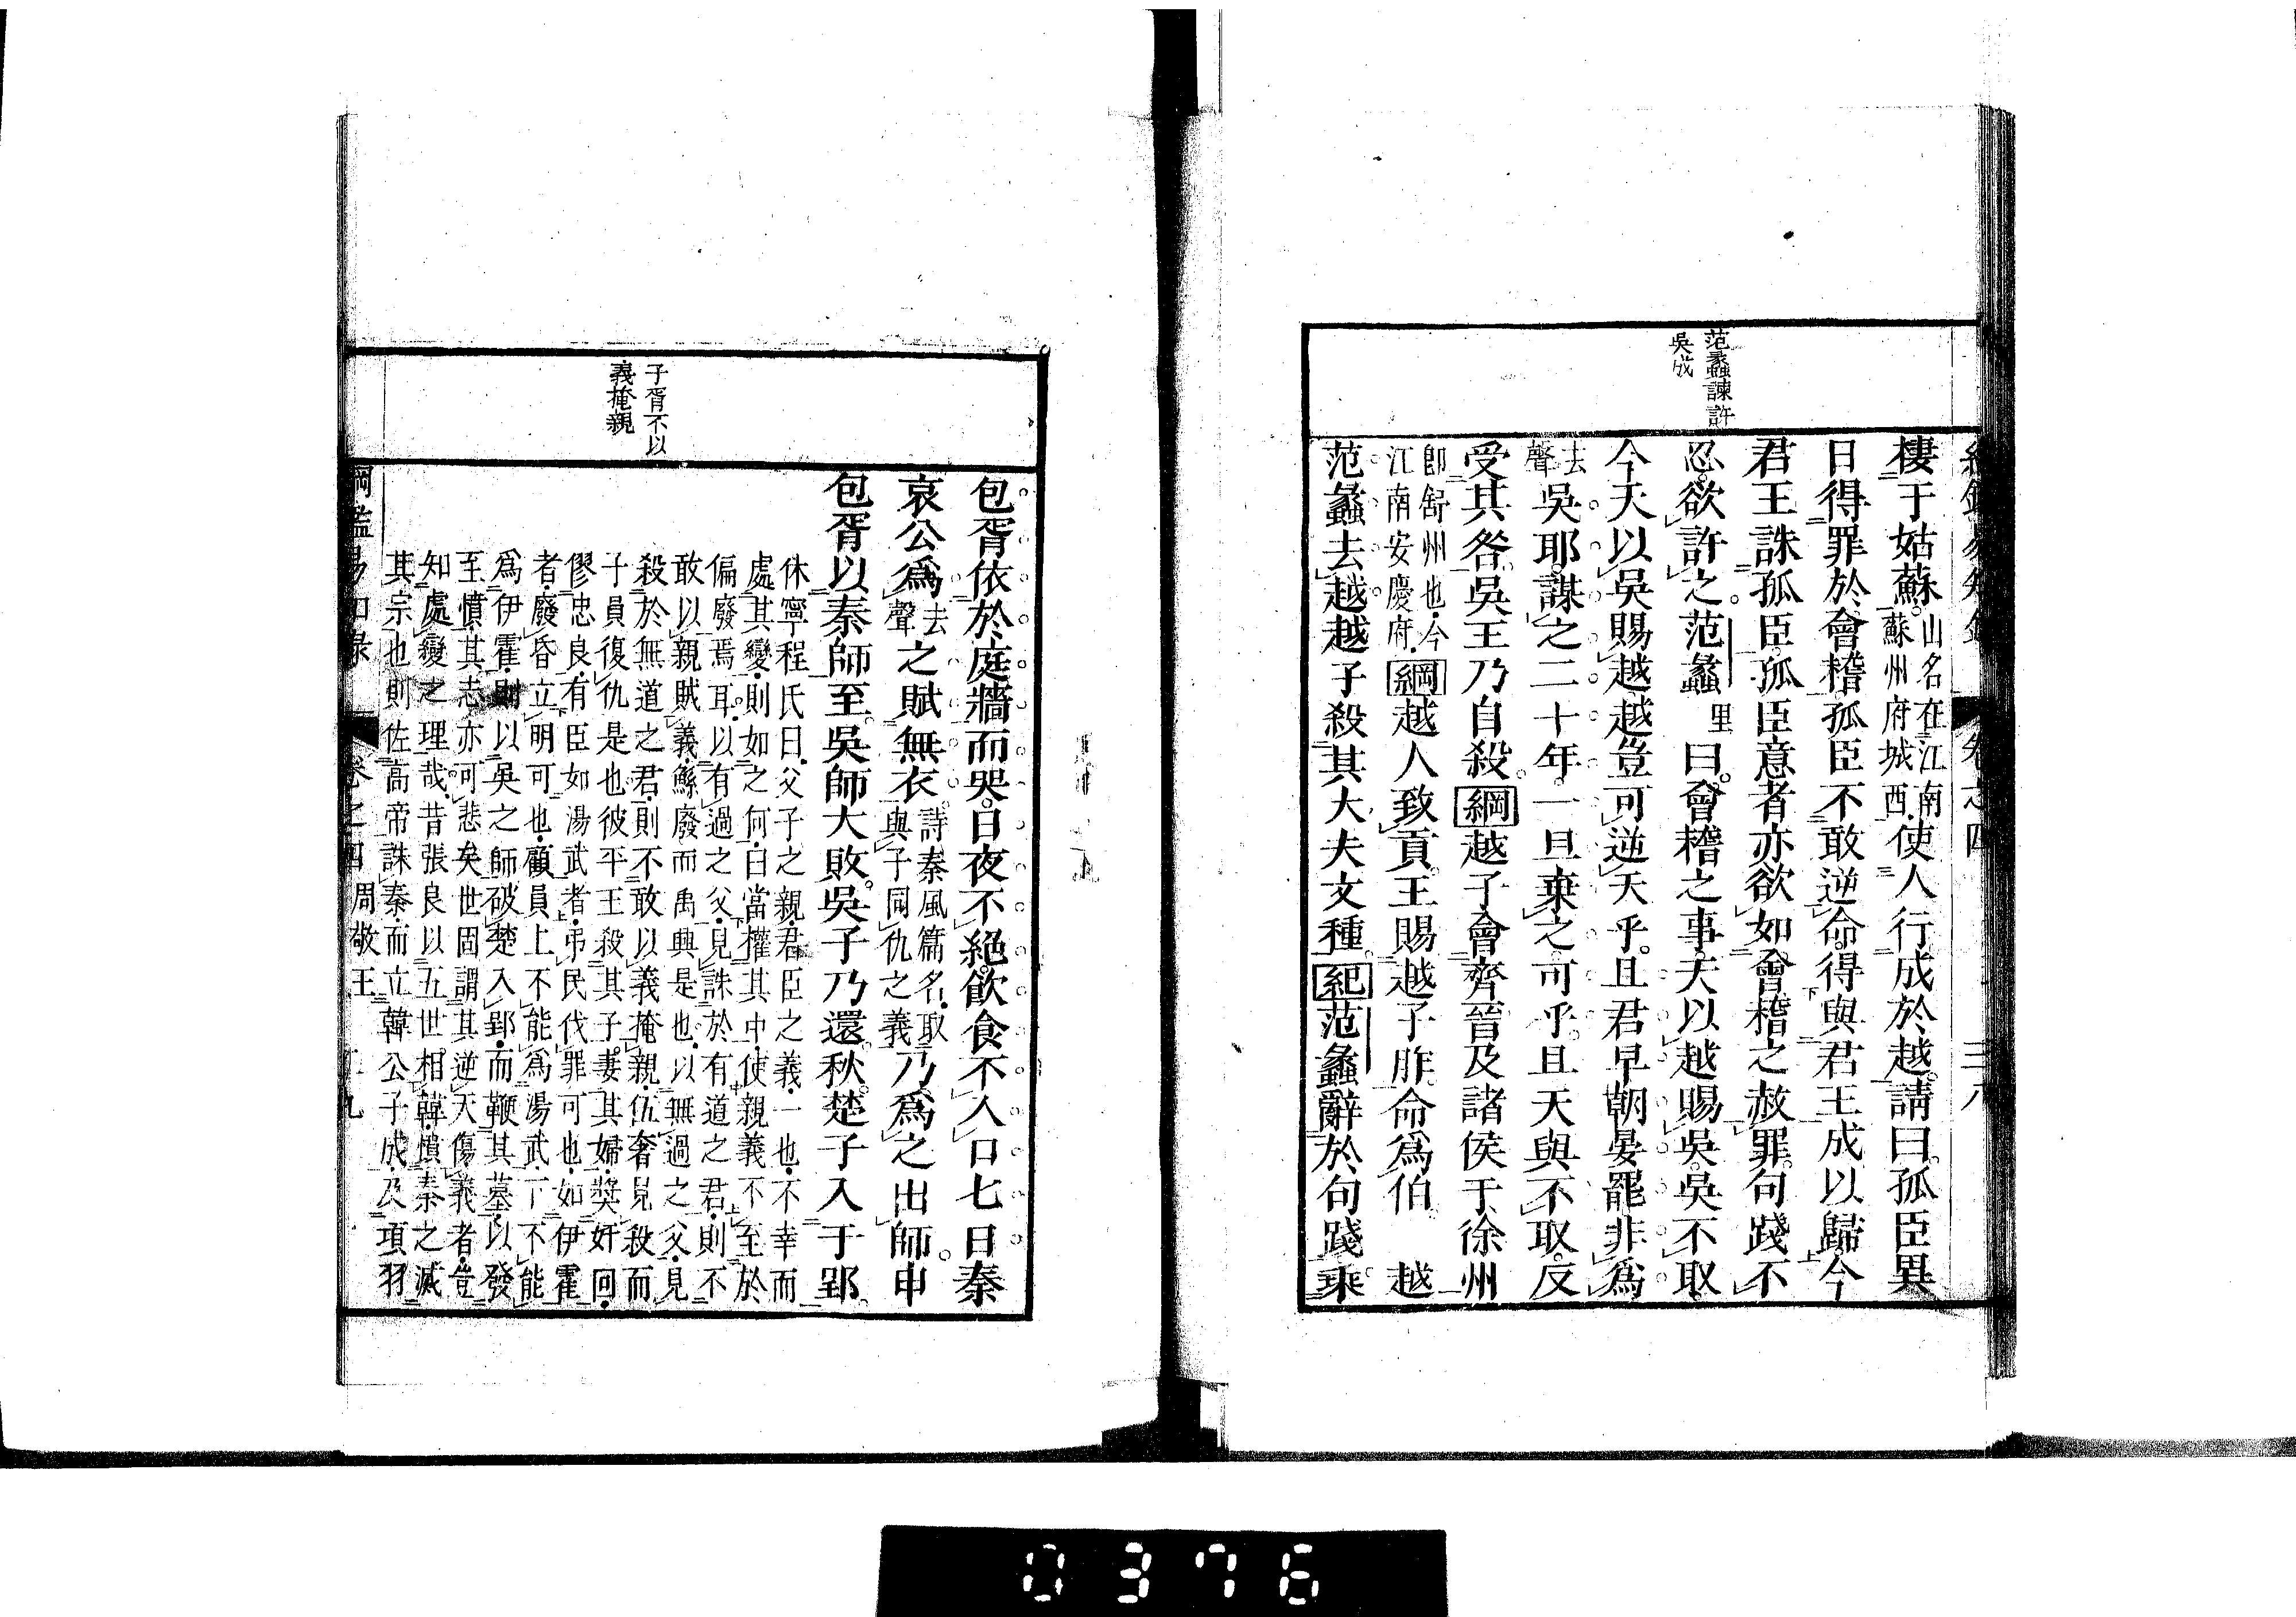 范蠡諫許
吳成
棲于姑蘇山名在江南蘇州府城西使人行成於越請曰孤臣異
日得罪於會稽孤臣不敢逆命得與君王成以歸今
君王誅孤臣孤臣意者亦欲如會稽之赦罪句踐不
忍欲許之范蠡里曰會稽之事天以越賜吳吳不取
今天以吳賜越越豈可逆天乎且君早朝晏罷非為
去聲吳耶謀之二十年一旦棄之可乎且天與不取反
受其咎吳王乃自殺綱越子會齊晉及諸侯于徐州
卽舒州也今江南安慶府綱越人致貢王賜越子胙命為伯 越
范蠡去越越子殺其大夫文種紀范蠡辭於句踐乘
子胥不以
義掩親
包胥依於庭牆而哭日夜不絕飲食不入口七日秦
哀公為去聲之賦無衣詩秦風篇名取與子同仇之義乃為之出師申
包胥以秦師至吳師大敗吳子乃還秋楚子入于郢
休寧程氏曰父子之親君臣之義一也不幸而
處其變則如之何曰當權其中使親義不至於
偏廢焉耳以有過之父見誅於有道之君則不
敢以親賊義鯀廢而禹興是也以無過之父見
殺於無道之君則不敢以義掩親伍奢見殺而
子員復仇是也彼平王殺其子妻其婦獎奸回
僇忠良有臣如湯武者弔民伐罪可也如伊霍
者廢昏立明可也顧員上不能為湯武下不能
為伊霍則以吳之師破楚入郢而鞭其墓以發
至憤其志亦可悲矣世固謂其逆天傷義者豈
知處變之理哉昔張良以五世相韓憤秦之滅
其宗也則佐高帝誅秦而立韓公子成及項羽
綱鑑易知錄 卷之四 周敬王 三九
0376